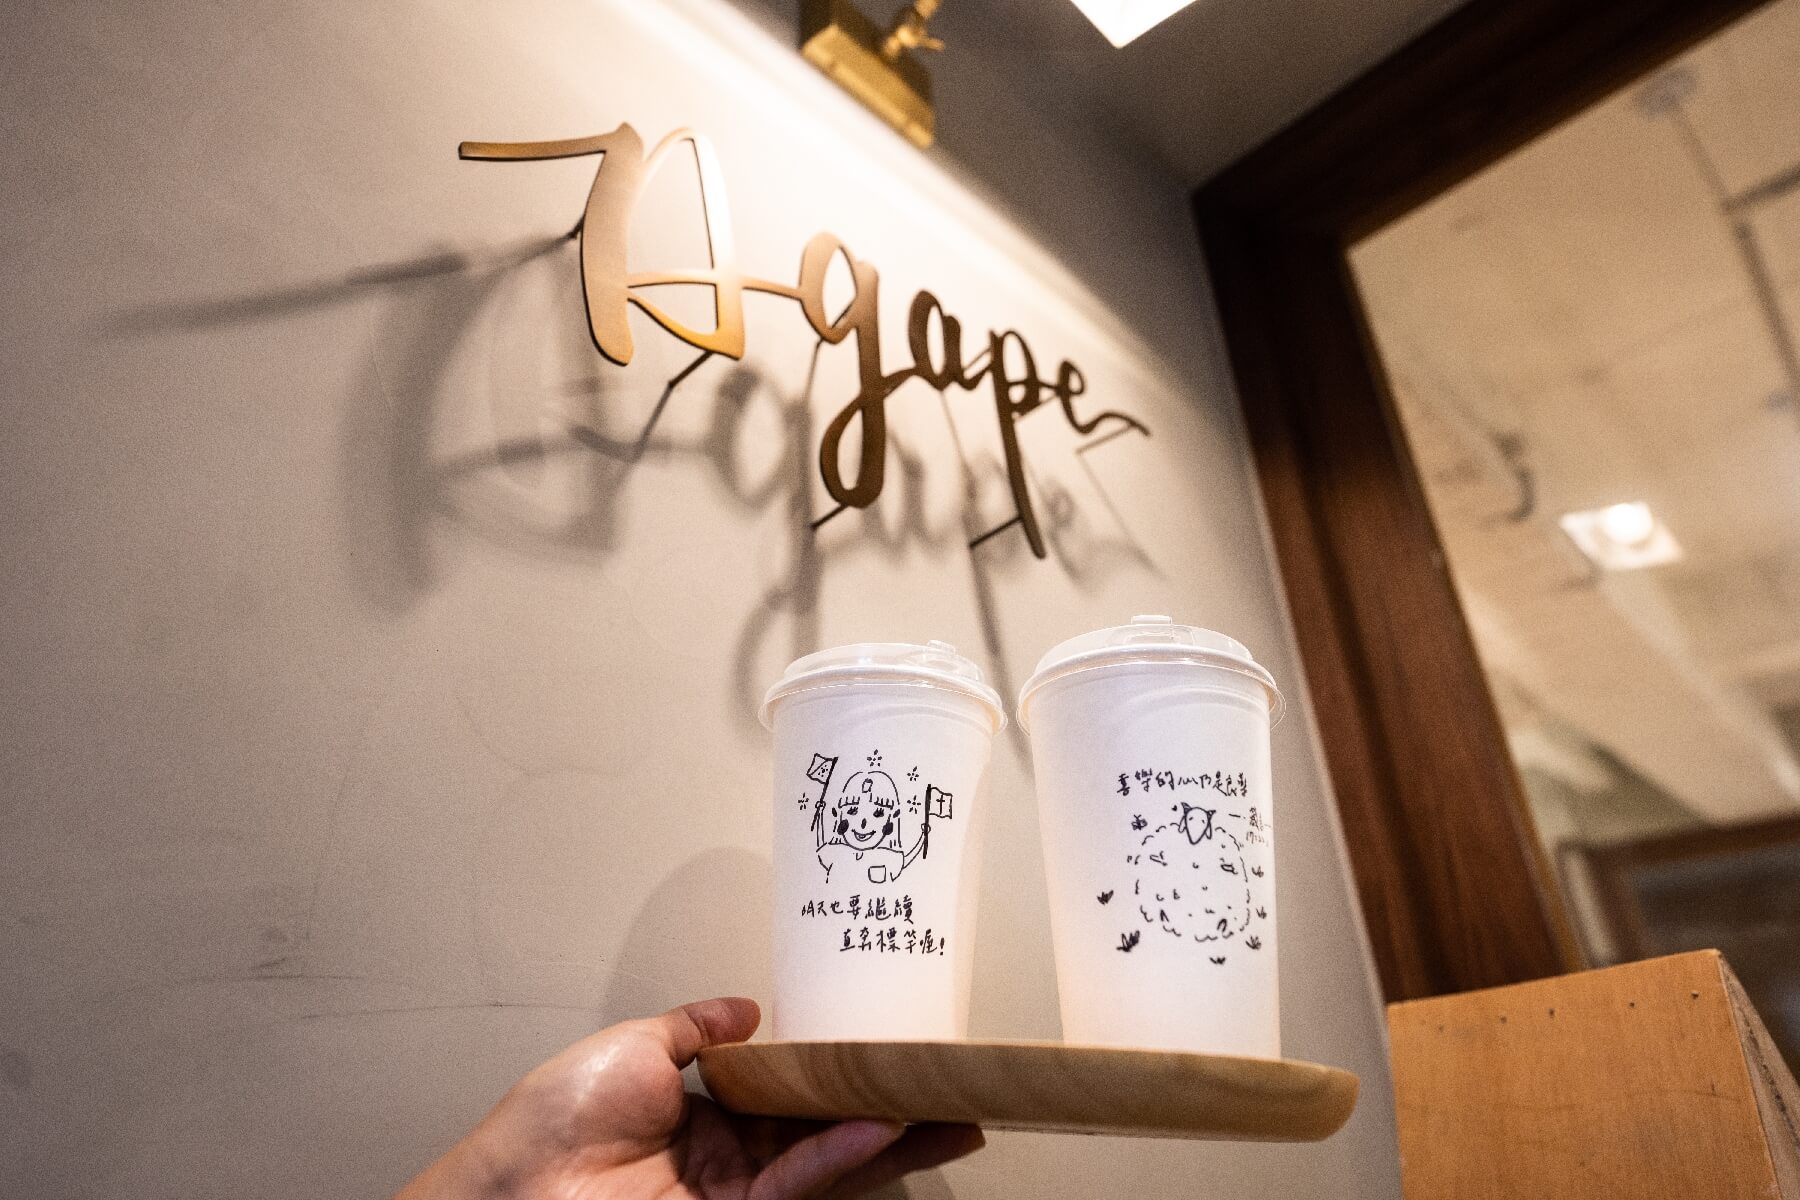 Agape
明天也要繼續
直奔標竿喔!
喜樂的心乃是良藥